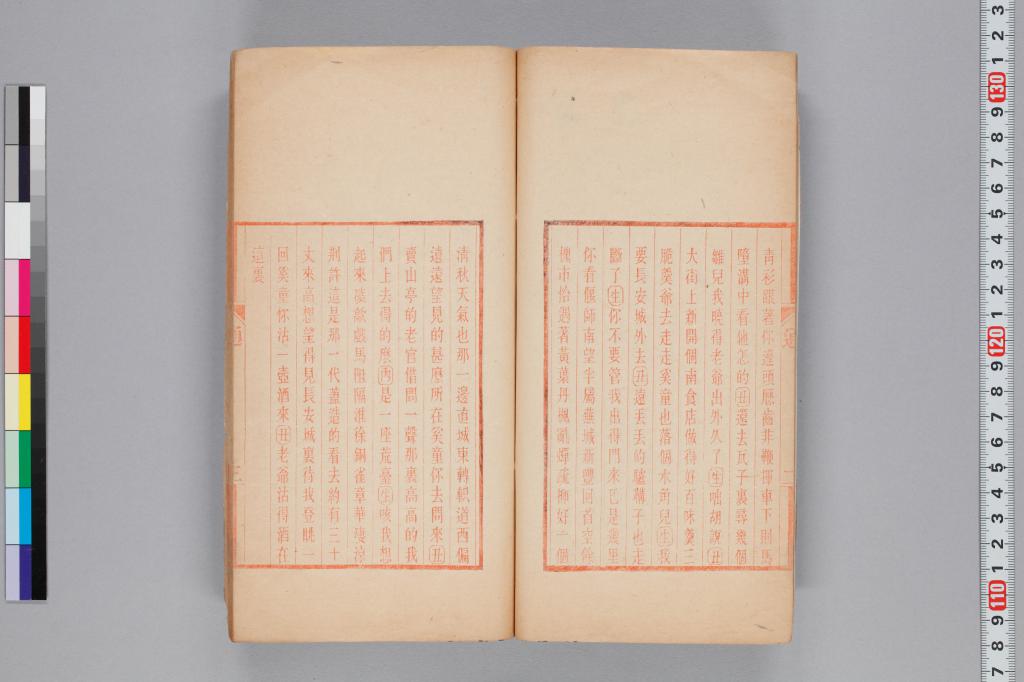 青衫跟著你蓬頭歷齒非鞭揮車下則馬
墜溝中看他怎的丑還去瓦子裏尋幾個
雛兒我曉得老爺出外久了生咄胡說丑
大街上新開個南食店做得好百味羹三
脆羹爺去走走奚童也落個水角兒生我
要長安城外去丑遠丟丟的驢驥子也走
斷了生你不要管我出得門來已是幾里
你看偃師南望半屬蕪城新豐回首空餘
槐市恰遇著黃葉丹楓亂蟬疏柳好一個
清秋天氣也那一邊直城東轉軹道西偏
遠遠望見的甚麼所在奚童你去問來丑
賣山亭的老官借問一聲那裏高高的我
們上去得的麼內是一座荒臺生咳我想
起來淒歔戲馬阻隔淮徐銅雀章華淒涼
荆許這是那一代蓋造的看去約有三十
丈來高想望得見長安城裏待我登眺一
回奚童你沽一壺酒來丑老爺沽得酒在
這裏